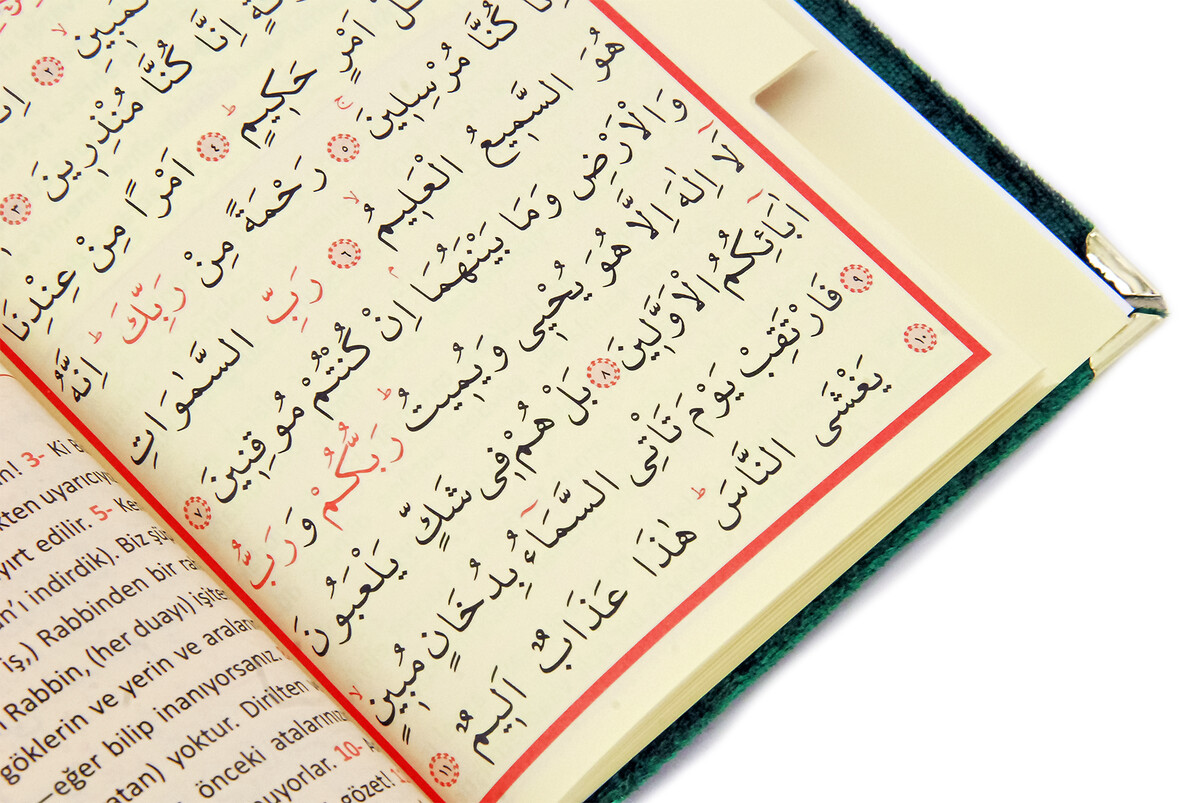 ٢
اِنَّا كُنَّا مُنْذِرِينَ ٣
اَمْرٍ حَكِيمٍ ٤ اَمْرًا مِنْ عِنْدِنَا
كُنَّا مُرْسِلِينَ ٥ رَحْمَةً مِنْ رَبِّكَ اِنَّهُ
هُوَ السَّمِيعُ الْعَلِيمُ ٦ رَبِّ السَّمٰوَاتِ
وَالْاَرْضِ وَمَا بَيْنَهُمَا اِنْ كُنْتُمْ مُوقِنِينَ ٧
لَٓا اِلٰهَ اِلَّا هُوَ يُحْيِى وَيُمِيتُ رَبُّكُمْ وَرَبُّ
اٰبَٓائِكُمُ الْاَوَّلِينَ ٨ بَلْ هُمْ فِى شَكٍّ يَلْعَبُونَ
٩ فَارْتَقِبْ يَوْمَ تَاْتِى السَّمَٓاءُ بِدُخَانٍ مُبِينٍ
١٠ يَغْشَى النَّاسَ هٰذَا عَذَابٌ اَلِيمٌ ١١
3- Ki
uyarıcıy
edilir. 5- Ke
indirdik). Biz
Rabbinden bir
Rabbin, (her duayı) işite
göklerin ve yerin ve aralar
—eğer bilip inanıyorsanız.
yoktur. Dirilten
önceki atalarınız
10-
gözet!